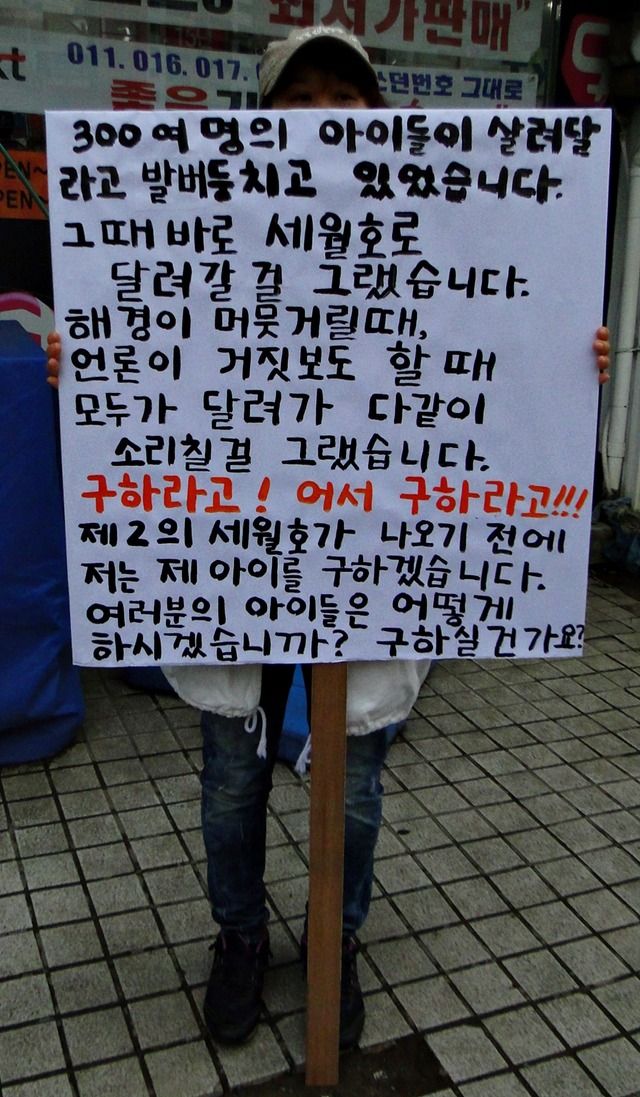 최저가판매"
kt
011. 016. 017.
쓰던번호 그대로
PEN~
PEN~
300여 명의 아이들이 살려달
라고 발버둥치고 있었습니다.
그때 바로 세월호로
달려갈 걸 그랬습니다.
해경이 머뭇거릴때,
언론이 거짓보도 할 때
모두가 달려가 다같이
소리칠걸 그랬습니다.
구하라고! 어서 구하라고!!!
제2의 세월호가 나오기 전에
저는 제 아이를 구하겠습니다.
여러분의 아이들은 어떻게
하시겠습니까? 구하실건가요?